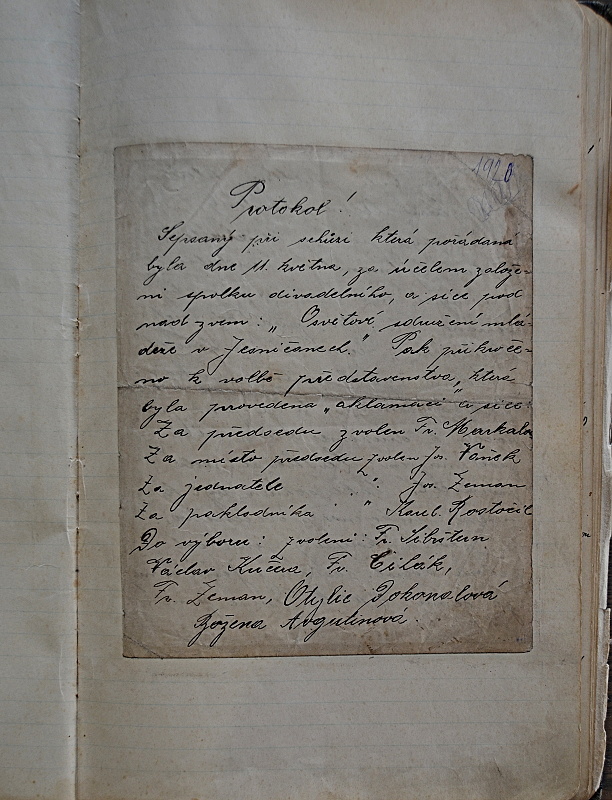 1920
Protokol!
Sepsaný při schůzi která pořádaná
byla dne 11. května, za účelem založe-
ní spolku divadelního, a sice pod
nad zvem: „Osvětové sdružení mlá-
deže v Jeníčanech." Pak přikroče-
no k volbě představenstva, která
byla provedena „aklamací" a sice:
Za předsedu zvolen Fr. Markalo
Za místo předsedu zvolen Jos. Vaněk
Za jednatele " Jos. Žeman
Za pokladníka " Karel. Rostočil
Do výboru: zvoleni: Fr.
Václav Kučera, Fr. Cilák,
Fr. Žeman, Otylie Dokonalová
Božena Avgutinová.